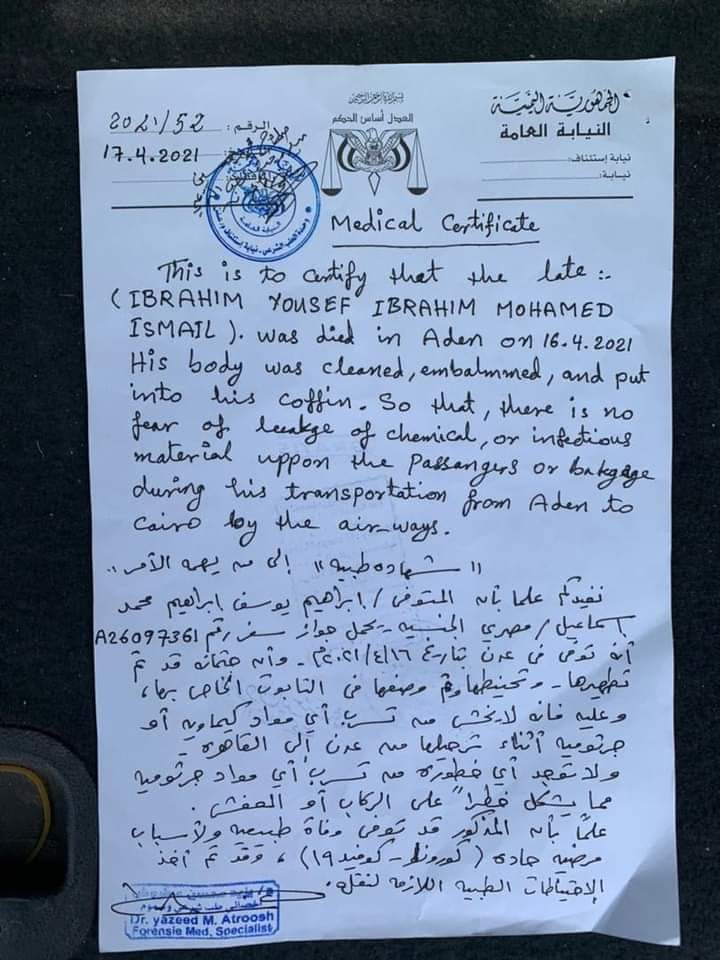 الجمهورية اليمنية
النيابة العامة
نيابة إستئناف:
نيابة:
بسم الله الرحمن الرحيم
العدل أساس الحكم
الرقم: 2021/52
17.4.2021
Medical Certificate
This is to certify that the late:-
(IBRAHIM YOUSEF IBRAHIM MOHAMED
ISMAIL). was died in Aden on 16.4.2021
His body was cleaned, embalmmed, and put
into his coffin. So that, there is no
fear of leeakge of chemical, or infectious
material uppon the passangers or bakgage
during his transportation from Aden to
Cairo by the air-ways.
"شهاده طبيه" إلى من يهمه الأمر
نفيدكم علما بأنه المتوفى / ابراهيم يوسف ابراهيم محمد
اسماعيل / مصري الجنسيه - يحمل جواز سفر رقم A26097361
أنه توفى في عدن بتاريخ ٢٠٢١/٤/١٦م - وأنه جثمانه قد تم
تطهيرها - وتحنيطها وتم وضعها في التابوت الخاص بها،
وعليه فانه لا يخشى من تسرب أي مواد كيماويه أو
جرثوميه أثناء ترحيلها من عدن إلى القاهره
ولا توجد أي خطوره من تسرب أي مواد جرثوميه
مما يشكل خطراً على الركاب أو العفش.
علماً بأنه المذكور قد توفى وفاة طبيعيه ولأسباب
مرضيه حاده (كورونا - كوفيد ١٩)، وقد تم أخذ
الإحتياطات الطبيه اللازمة لنقله.
Dr. yazeed M. Atroosh
Forensie Med. Specialist